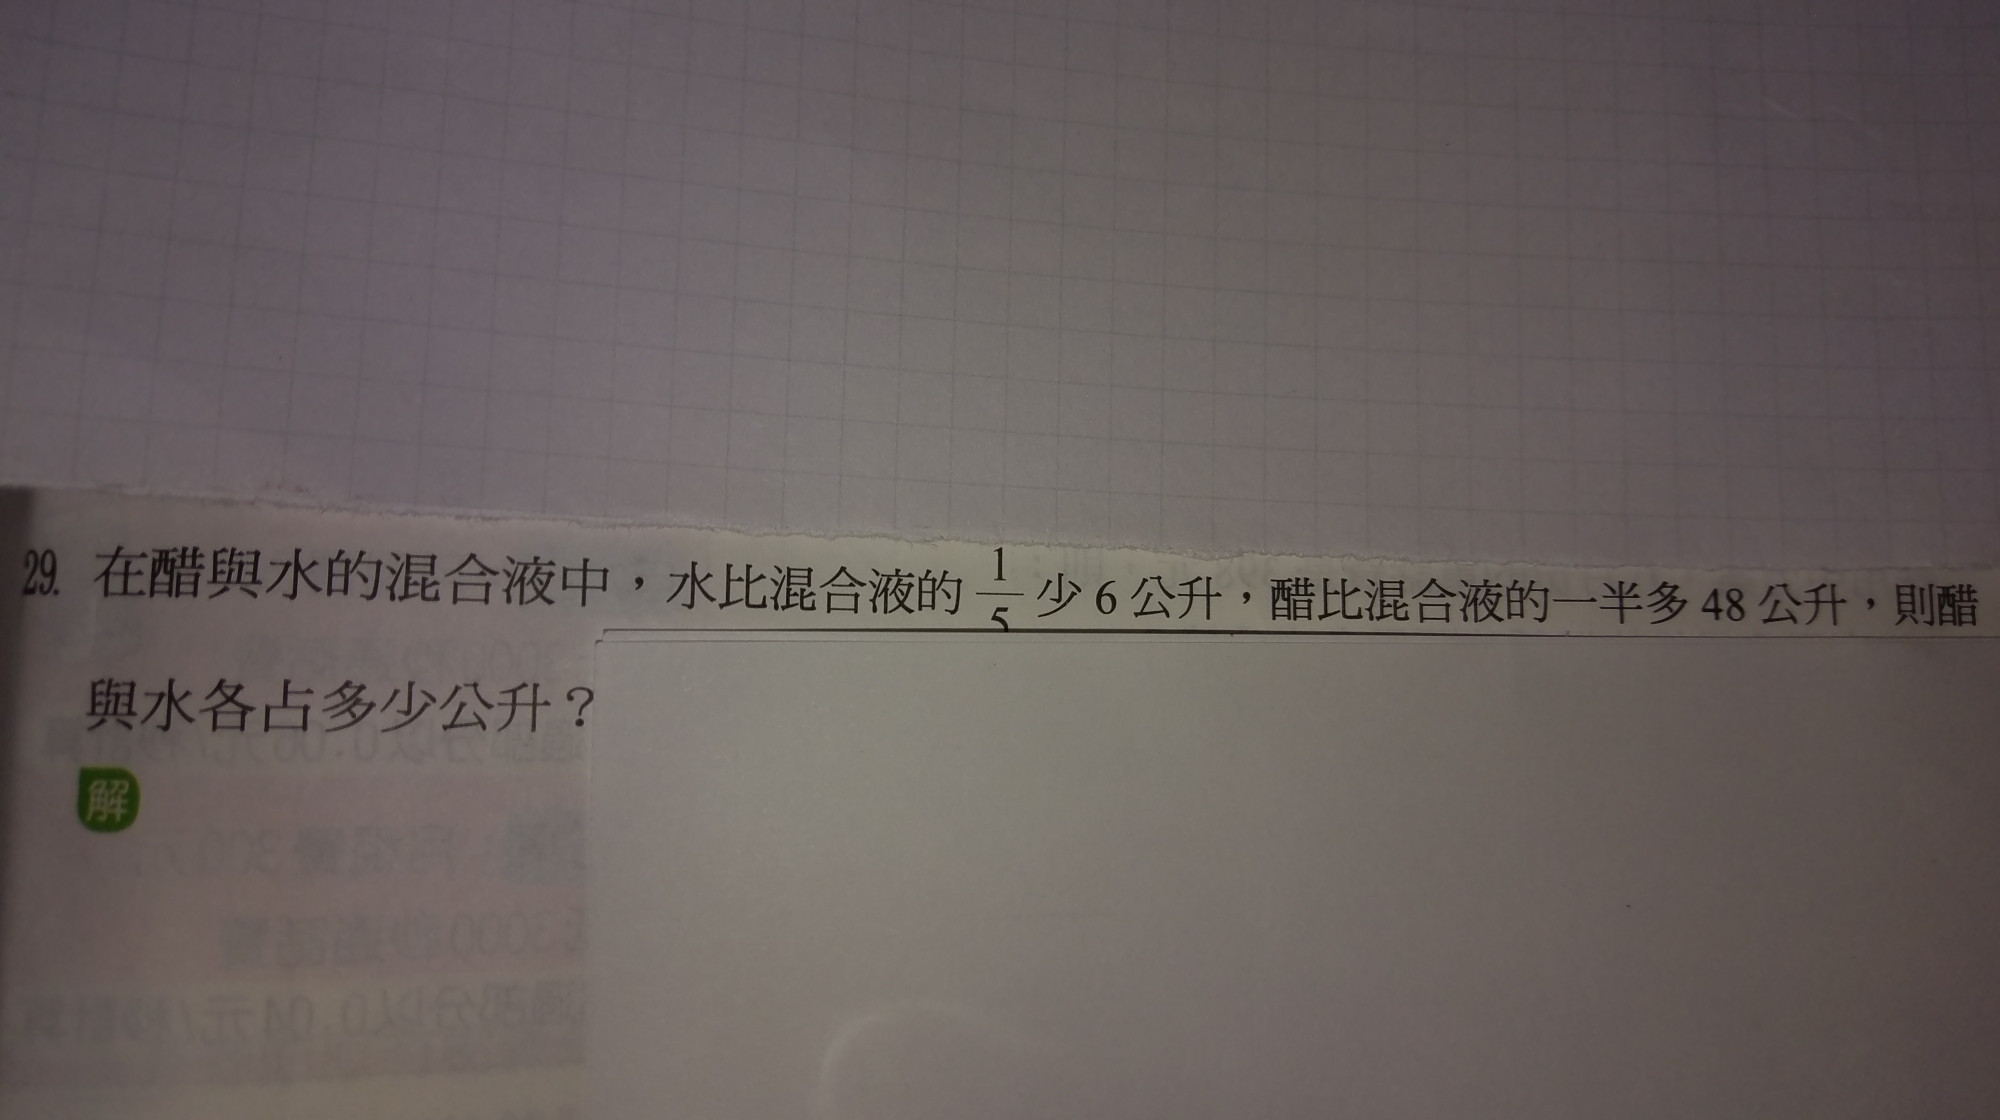 29. 在醋與水的混合液中，水比混合液的 1/5 少 6 公升，醋比混合液的一半多 48 公升，則醋
與水各占多少公升？
解